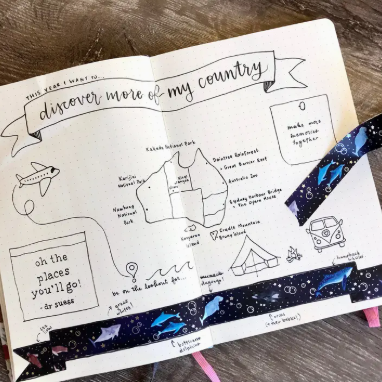 THIS YEAR I WANT TO...
discover more of my country
make more
memories
together
Kakadu National Park
Karijini
National Park
Daintree Rainforest
+ Great Barrier Reef
Australia Zoo
Nambung
National
Park
Sydney Harbour Bridge
+ The Opera House
Kangaroo
Island
Cradle Mountain
Bruny Island
oh the
places
you'll go!
- dr suess
be on the lookout for...